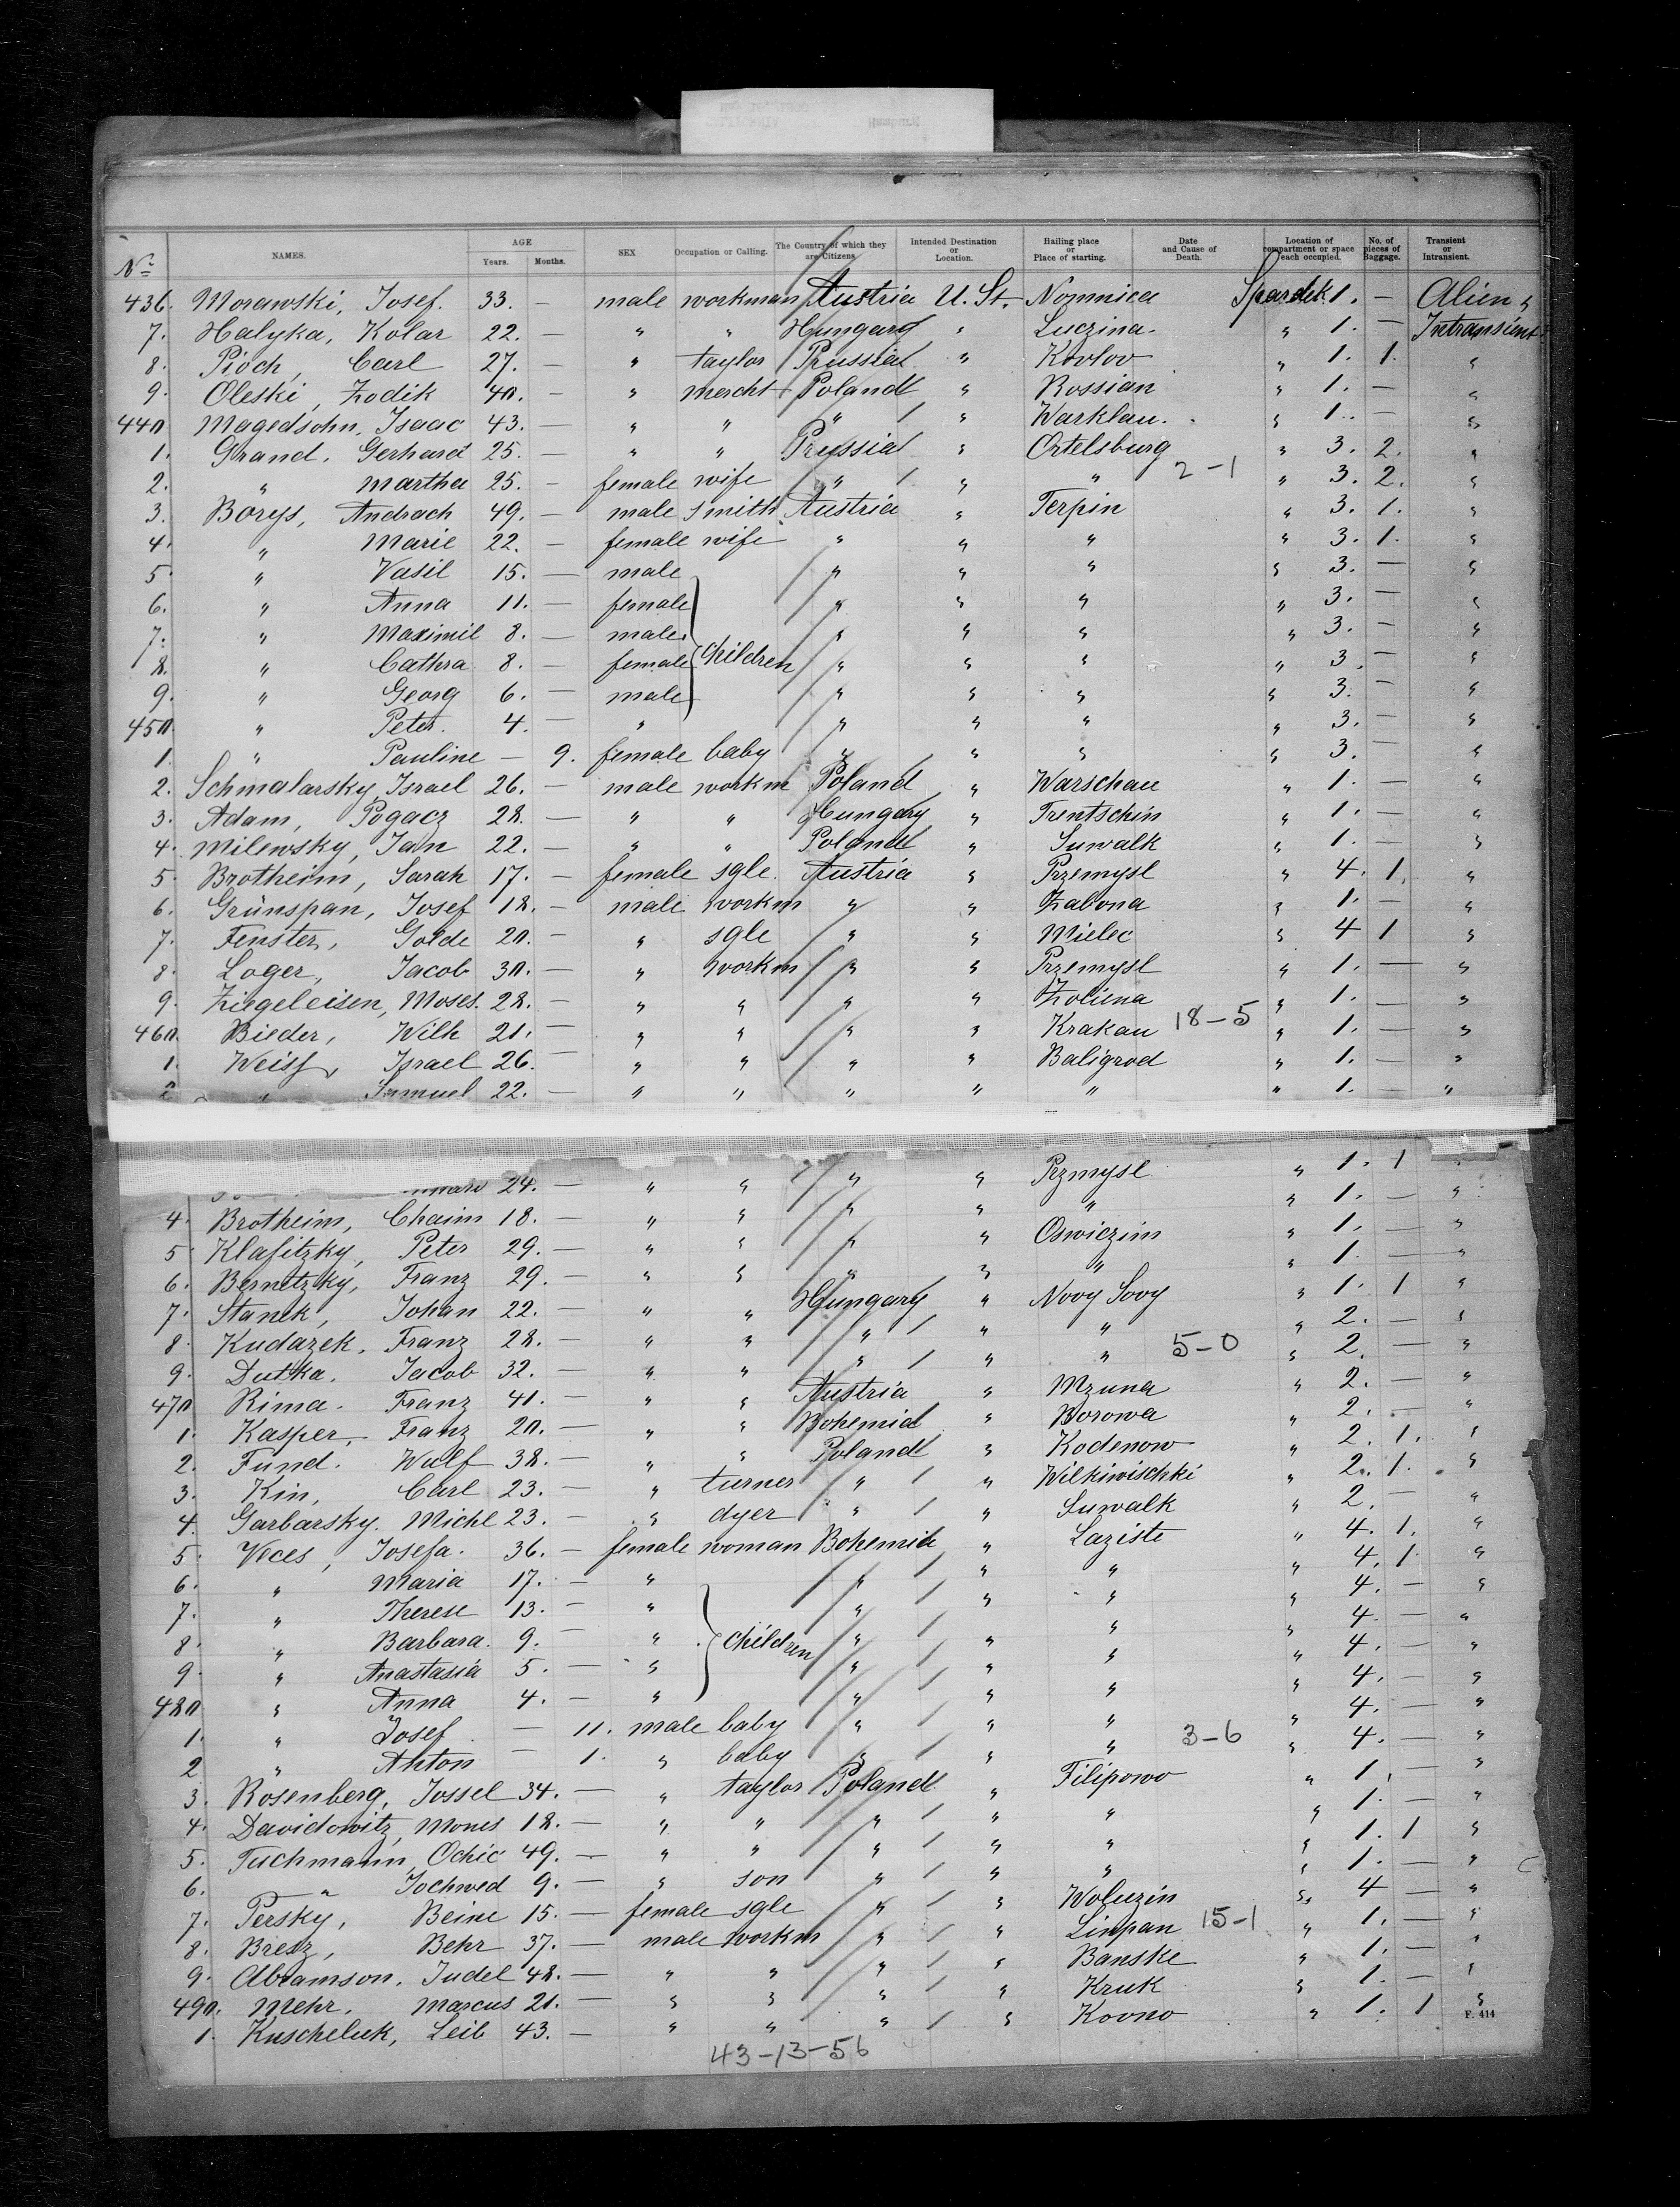 No. NAMES. AGE Years. Months. SEX Occupation or Calling. The Country of which they are Citizens Intended Destination or Location. Hailing place or Place of starting. Date and Cause of Death. Location of compartment or space each occupied. No. of pieces of Baggage. Transient or Intransient.
436. Morawski, Josef. 33. — male workman Austria U. St. Nomnica Spardek 1. — Alien &
7. Halyka, Kolar 22. — " " Hungary " Luczina. " 1. — Intransient
8. Pioch, Carl 27. — " taylor Prussia " Kovlov " 1. 1. "
9. Oleski, Zodik 40. — " mercht Poland " Rossian " 1. — "
440 Magedsohn, Isaac 43. — " " " " Warklau. " 1. — "
1. Grand, Gerhard 25. — " " Prussia " Ortelsburg " 3. 2. "
2. " Martha 25. — female wife " " " 2-1 " 3. 2. "
3. Borys, Andrach 49. — male smith Austria " Terpin " 3. 1. "
4. " Marie 22. — female wife " " " " 3. 1. "
5. " Vasil 15. — male " " " " 3. — "
6. " Anna 11. — female " " " " 3. — "
7. " Maximil 8. — male " " " " 3. — "
8. " Cathra 8. — female children " " " " 3. — "
9. " Georg 6. — male " " " " 3. — "
450. " Peter. 4. — " " " " " 3. — "
1. " Pauline — 9. female baby " " " " 3. — "
2. Schmalarsky, Israel 26. — male workm Poland " Warschau " 1. — "
3. Adam, Pogacz 28. — " " Hungary " Trentschin " 1. — "
4. Milewsky, Jan 22. — " " Poland " Suwalk " 1. — "
5. Brotheim, Sarah 17. — female sgle. Austria " Przemysl " 4. 1. "
6. Grünspan, Josef 18. — male workm " " Zabona " 1. — "
7. Fenster, Golde 20. — " sgle " " Mielec " 4 1 "
8. Loger, Jacob 30. — " workm " " Przemysl " 1. — "
9. Ziegeleisen, Moses. 28. — " " " " Zoliena " 1. — "
460. Bieder, Wilh 21. — " " " " Krakau 18-5 " 1. — "
1. Weiss, Israel 26. — " " " " Baligrod " 1. — "
2 " Samuel 22. — " " " " " " 1. — "
24. — " " " " Przmysl " 1. 1 "
4. Brotheim, Chaim 18. — " " " " " " 1. — "
5. Klasitzky, Peter 29. — " " " " Oswiezim " 1. — "
6. Bernetzky, Franz 29. — " " " " " " 1. — "
7. Stanek, Johan 22. — " " Hungary " Novy Sovy " 1. 1 "
8. Kudazek, Franz 28. — " " " " " " 2. — "
9. Dutka, Jacob 32. — " " " " " 5-0 " 2. — "
470 Rima. Franz 41. — " " Austria " Mzuna " 2. — "
1. Kasper, Franz 20. — " " Bohemia " Borowa " 2. — "
2. Fund. Wulf 38. — " " Poland " Kodenow " 2. 1. "
3. Kin, Carl 23. — " turner " " Wilkiwischki " 2. 1. "
4. Garbarsky. Michl 23. — " dyer " " Suwalk " 2. — "
5. Veces, Josefa. 36. — female woman Bohemia " Laziste " 4. 1. "
6. " Maria 17. — " " " " " 4. 1. "
7. " Therese 13. — " " " " " 4. — "
8. " Barbara. 9. — " children " " " " 4. — "
9. " Anastasia 5. — " " " " " 4. — "
480 " Anna 4. — " " " " " 4. — "
1. " Josef — 11. male baby " " " " 4. — "
2 " Anton — 1. " baby " " " 3-6 " 4. — "
3. Rosenberg, Jossel 34. — " taylor Poland " Filipowo " 1. — "
4. Davidowitz, Mones 18. — " " " " " " 1. — "
5. Tuchmann, Ochic 49. — " " " " " " 1. 1 "
6. " Jochwed 9. — " son " " " " 1. — "
7. Persky, Beine 15. — female sgle " " Woluzin " 4 — "
8. Bresz, Behr 37. — male workm " " Linpan 15-1 " 1. — "
9. Abramson, Judel 48. — " " " " Banske " 1. — "
490. Mehr, Marcus 21. — " " " " Kruk " 1. — "
1. Kuscheluk, Leib 43. — " " " " Kovno " 1. 1 "
F. 414
43-13-56